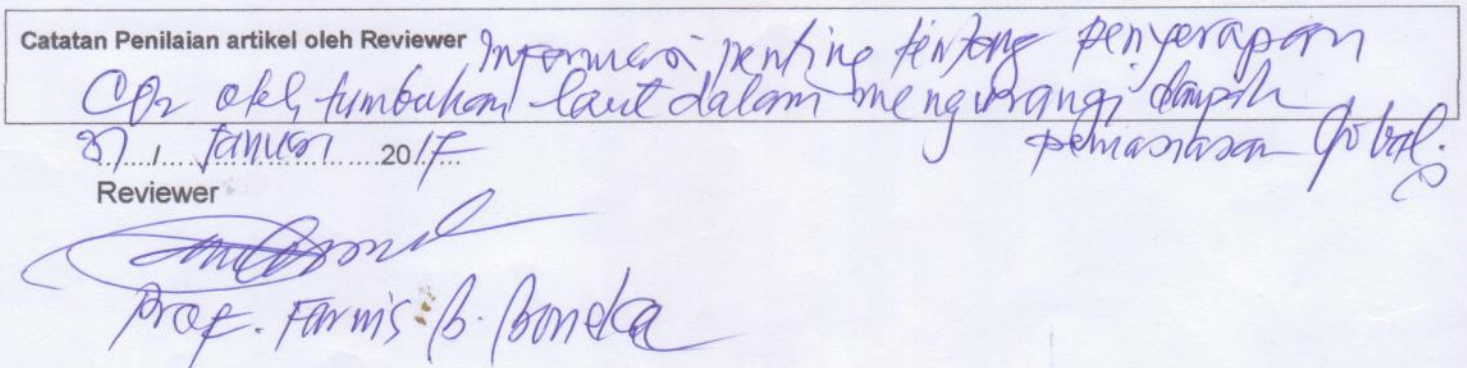 Catatan Penilaian artikel oleh Reviewer Informasi penting tentang penyerapan
CO2 oleh tumbuhan laut dalam mengurangi dampak
pemanasan Global.
/ Januari 2017
Reviewer
Prof. Farnis B. Boneka